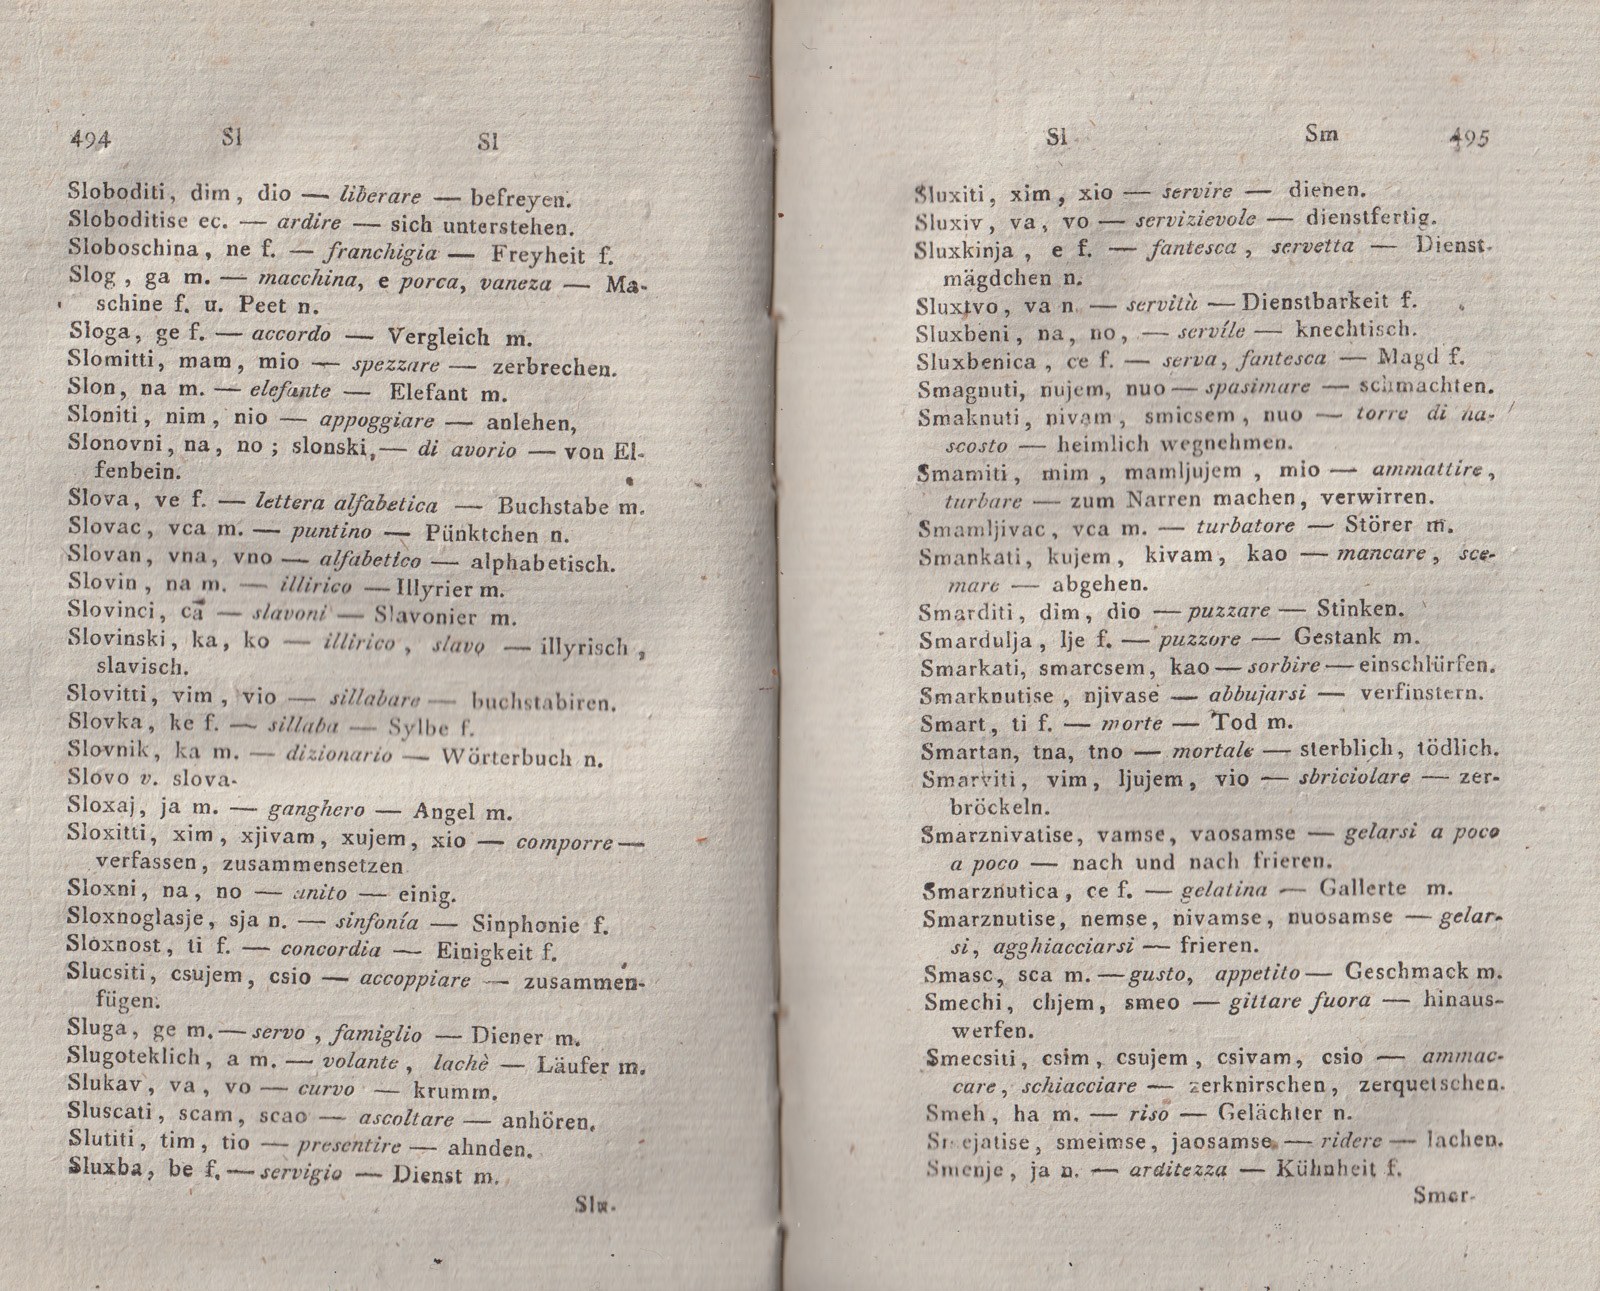 494 Sl Sl
Sloboditi, dim, dio — liberare — befreyen.
Sloboditise ec. — ardire — sich unterstehen.
Sloboschina, ne f. — franchigia — Freyheit f.
Slog, ga m. — macchina, e porca, vaneza — Ma-
schine f. u. Peet n.
Sloga, ge f. — accordo — Vergleich m.
Slomitti, mam, mio — spezzare — zerbrechen.
Slon, na m. — elefante — Elefant m.
Sloniti, nim, nio — appoggiare — anlehen,
Slonovni, na, no; slonski, — di avorio — von El-
fenbein.
Slova, ve f. — lettera alfabetica — Buchstabe m.
Slovac, vca m. — puntino — Pünktchen n.
Slovan, vna, vno — alfabetico — alphabetisch.
Slovin, na m. — illirico — Illyrier m.
Slovinci, ca — slavoni — Slavonier m.
Slovinski, ka, ko — illirico, slavo — illyrisch,
slavisch.
Slovitti, vim, vio — sillabare — buchstabiren.
Slovka, ke f. — sillaba — Sylbe f.
Slovnik, ka m. — dizionario — Wörterbuch n.
Slovo v. slova-
Sloxaj, ja m. — ganghero — Angel m.
Sloxitti, xim, xjivam, xujem, xio — comporre —
verfassen, zusammensetzen
Sloxni, na, no — unito — einig.
Sloxnoglasje, sja n. — sinfonía — Sinphonie f.
Sloxnost, ti f. — concordia — Einigkeit f.
Slucsiti, csujem, csio — accoppiare — zusammen-
fügen.
Sluga, ge m. — servo, famiglio — Diener m.
Slugoteklich, a m. — volante, lachè — Läufer m.
Slukav, va, vo — curvo — krumm.
Sluscati, scam, scao — ascoltare — anhören.
Slutiti, tim, tio — presentire — ahnden.
Sluxba, be f. — servigio — Dienst m.
Slu-
Sl Sm 495
Sluxiti, xim, xio — servire — dienen.
Sluxiv, va, vo — servizievole — dienstfertig.
Sluxkinja, e f. — fantesca, servetta — Dienst-
mägdchen n.
Sluxtvo, va n. — servitù — Dienstbarkeit f.
Sluxbeni, na, no, — servíle — knechtisch.
Sluxbenica, ce f. — serva, fantesca — Magd f.
Smagnuti, nujem, nuo — spasimare — schmachten.
Smaknuti, nivam, smicsem, nuo — torre di na-
scosto — heimlich wegnehmen.
Smamiti, mim, mamljujem, mio — ammattire,
turbare — zum Narren machen, verwirren.
Smamljivac, vca m. — turbatore — Störer m.
Smankati, kujem, kivam, kao — mancare, sce-
mare — abgehen.
Smarditi, dim, dio — puzzare — Stinken.
Smardulja, lje f. — puzzore — Gestank m.
Smarkati, smarcsem, kao — sorbire — einschlürfen.
Smarknutise, njivase — abbujarsi — verfinstern.
Smart, ti f. — morte — Tod m.
Smartan, tna, tno — mortale — sterblich, tödlich.
Smarviti, vim, ljujem, vio — sbriciolare — zer-
bröckeln.
Smarznivatise, vamse, vaosamse — gelarsi a poco
a poco — nach und nach frieren.
Smarznutica, ce f. — gelatina — Gallerte m.
Smarznutise, nemse, nivamse, nuosamse — gelar-
si, agghiacciarsi — frieren.
Smasc, sca m. — gusto, appetito — Geschmack m.
Smechi, chjem, smeo — gittare fuora — hinaus-
werfen.
Smecsiti, csim, csujem, csivam, csio — ammac-
care, schiacciare — zerknirschen, zerquetschen.
Smeh, ha m. — riso — Gelächter n.
Smejatise, smeimse, jaosamse — ridere — lachen.
Smenje, ja n. — arditezza — Kühnheit f.
Smer-